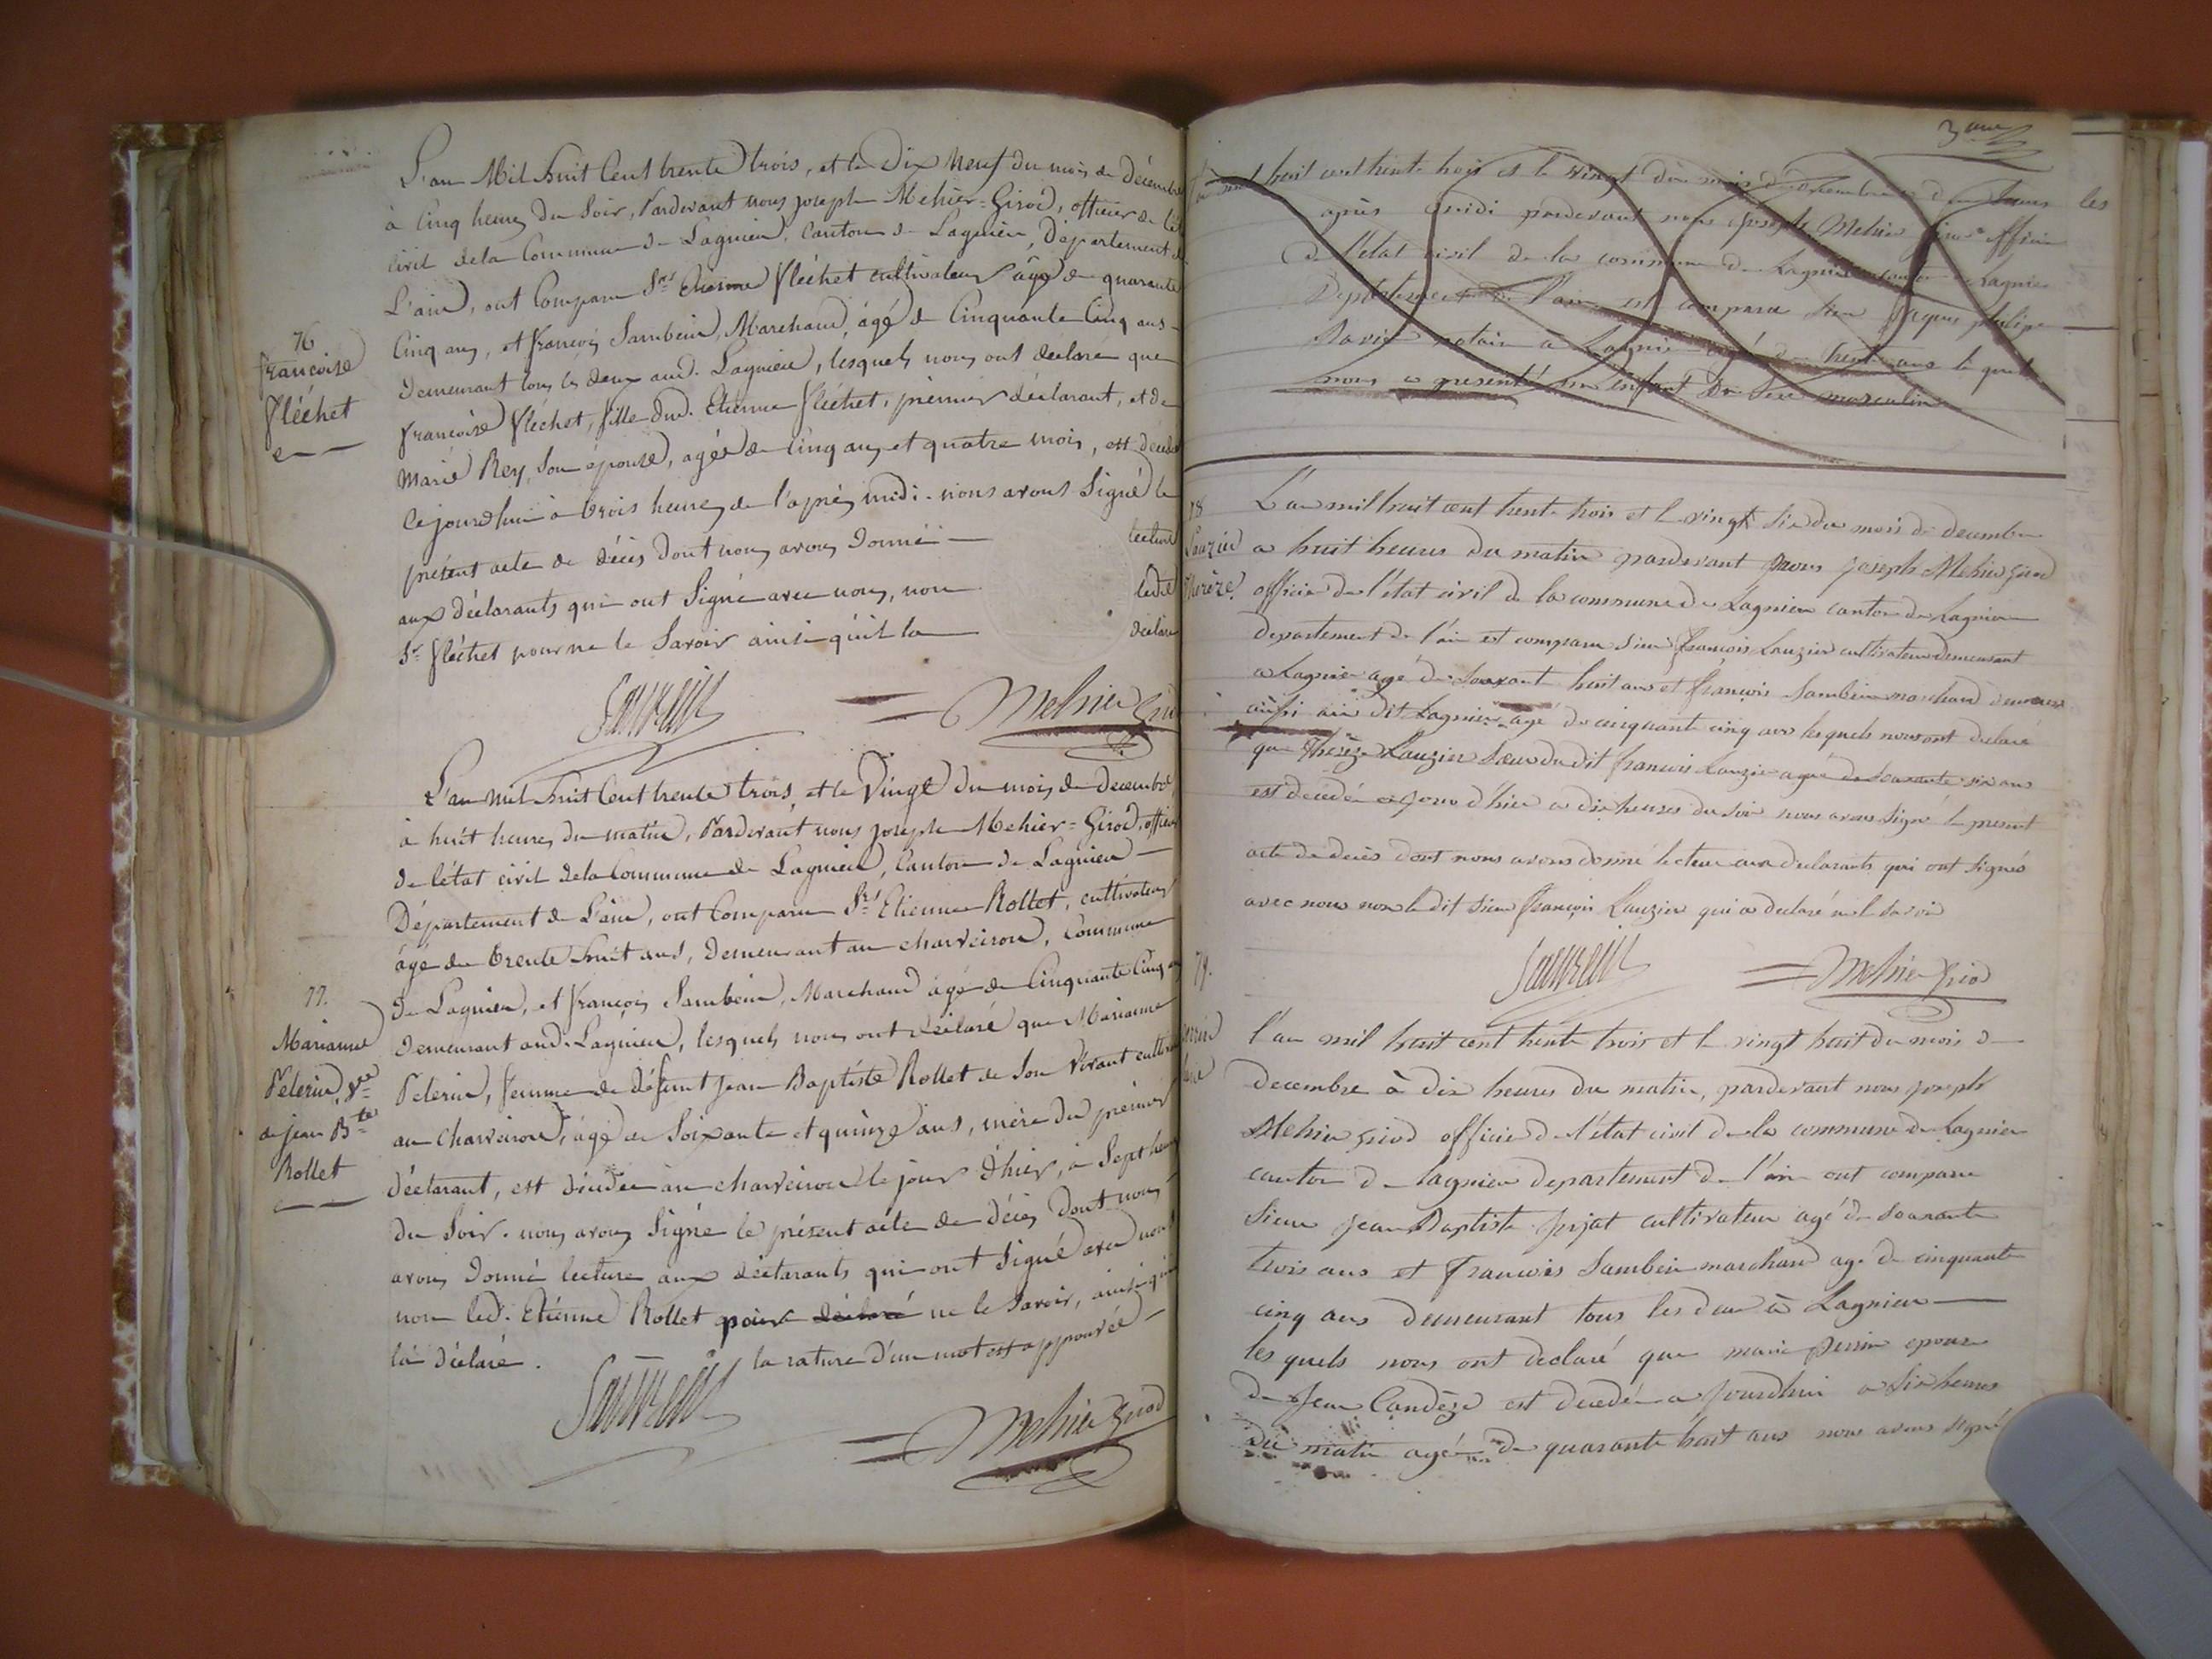 L'an Mil huit Cent trente trois, et le Dix Neuf du mois de décembre
à Cinq heures du Soir, Pardevant nous joseph Mehier=Girod, officier de l'ét
civil de la Commune de Lagnieu, Canton de Lagnieu, Département de
L'ain, ont Comparu Srs Etienne fléchet cultivateur âgé de quarante
Cinq ans, et françois Sambein, Marchand, âgé de Cinquante Cinq ans
demeurant tous les deux aud. Lagnieu, lesquels nous ont déclaré que
76
françoise
fléchet
françoise fléchet, fille dud. Etienne fléchet, premier déclarant, et de
Marie Rey, son épouse, agée de Cinq ans et quatre mois, est décédée
Ce jourd'hui à trois heures de l'après midi. nous avons Signé le
présent acte de décès dont nous avons donné — lecture
aux déclarants qui ont Signé avec nous, non ledit
Sr. fléchet pour ne le Savoir ainsi qu'il la — déclaré
Mehier Gir
L'an mil huit Cent trente trois, et le Vingt du mois de decembre
à huit heures du matin, Pardevant nous joseph Mehier=Girod, officier
de l'état civil de la Commune de Lagnieu, Canton de Lagnieu —
Département de L'ain, ont Comparu Srs Etienne Rollet, cultivateur
âgé de trente huit ans, demeurant au charveiron, Commune
de Lagnieu, et françois Sambein, Marchand âgé de Cinquante Cinq ans
77.
Marianne
Pelerin, Ve
de jean Bte
Rollet
demeurant aud. Lagnieu, lesquels nous ont déclaré que Marianne
Pelerin, femme de défunt Jean Baptiste Rollet de Son Vivant cultiv
au Charveiron, âgé de Soixante et quinze ans, mère du premier
déclarant, est décédée au charveiron le jour d'hier, à Sept heures
du Soir. nous avons Signé le présent acte de décès dont nous
avons donné lecture aux déclarants qui ont Signé avec nous
non led. Etienne Rollet pour déclaré ne le Savoir, ainsi qu'il
la déclaré. la rature d'un mot est approuvée —
Mehier Girod
huit cent trente trois et le vingt du mois de decembre a deux les
après midi pardevant nous joseph Mehier Girod officier
de l'état civil de la commune de Lagnieu canton de Lagnieu
Departement de l'ain est comparu sieur jaques philipe
notaire à Lagnieu agé de trente ans le quel
nous a presenté un enfant du sexe masculin
78
Lauzier
Thérèze
L'an mil huit cent trente trois et le vingt six du mois de decembre
a huit heures du matin pardevant nous joseph Mehier Girod
officier de l'état civil de la commune de Lagnieu canton de Lagnieu
departement de l'ain est comparu sieur françois Lauzier cultivateur demeurant
a Lagnieu agé de soixante huit ans et françois Sambein marchand demeurant
aussi au dit Lagnieu agé de cinquante cinq ans lesquels nous ont declaré
que Thérèze Lauzier soeur du dit francois Lauzier agée de soixante six ans
est decedée ce jour d'hier a dix heures du soir nous avons signé le present
acte de decès dont nous avons donné lecture aux declarants qui ont signés
avec nous non le dit sieur françois Lauzier qui a declaré ne le savoir
Mehier Girod
79.
l'an mil huit cent trente trois et le vingt huit du mois de
decembre à dix heures du matin, pardevant nous joseph
Mehier Girod officier de l'état civil de la commune de Lagnieu
canton de lagnieu departement de l'ain ont comparu
sieur Jean Baptiste cultivateur agé de soixante
trois ans et francois Sambein marchand age de cinquante
cinq ans demeurant tous les deux à Lagnieu —
les quels nous ont declaré que marie perrin epouse
de Jean Candèze est decedée a jourdhui a six heures
du matin agée de quarante huit ans nous avons signé